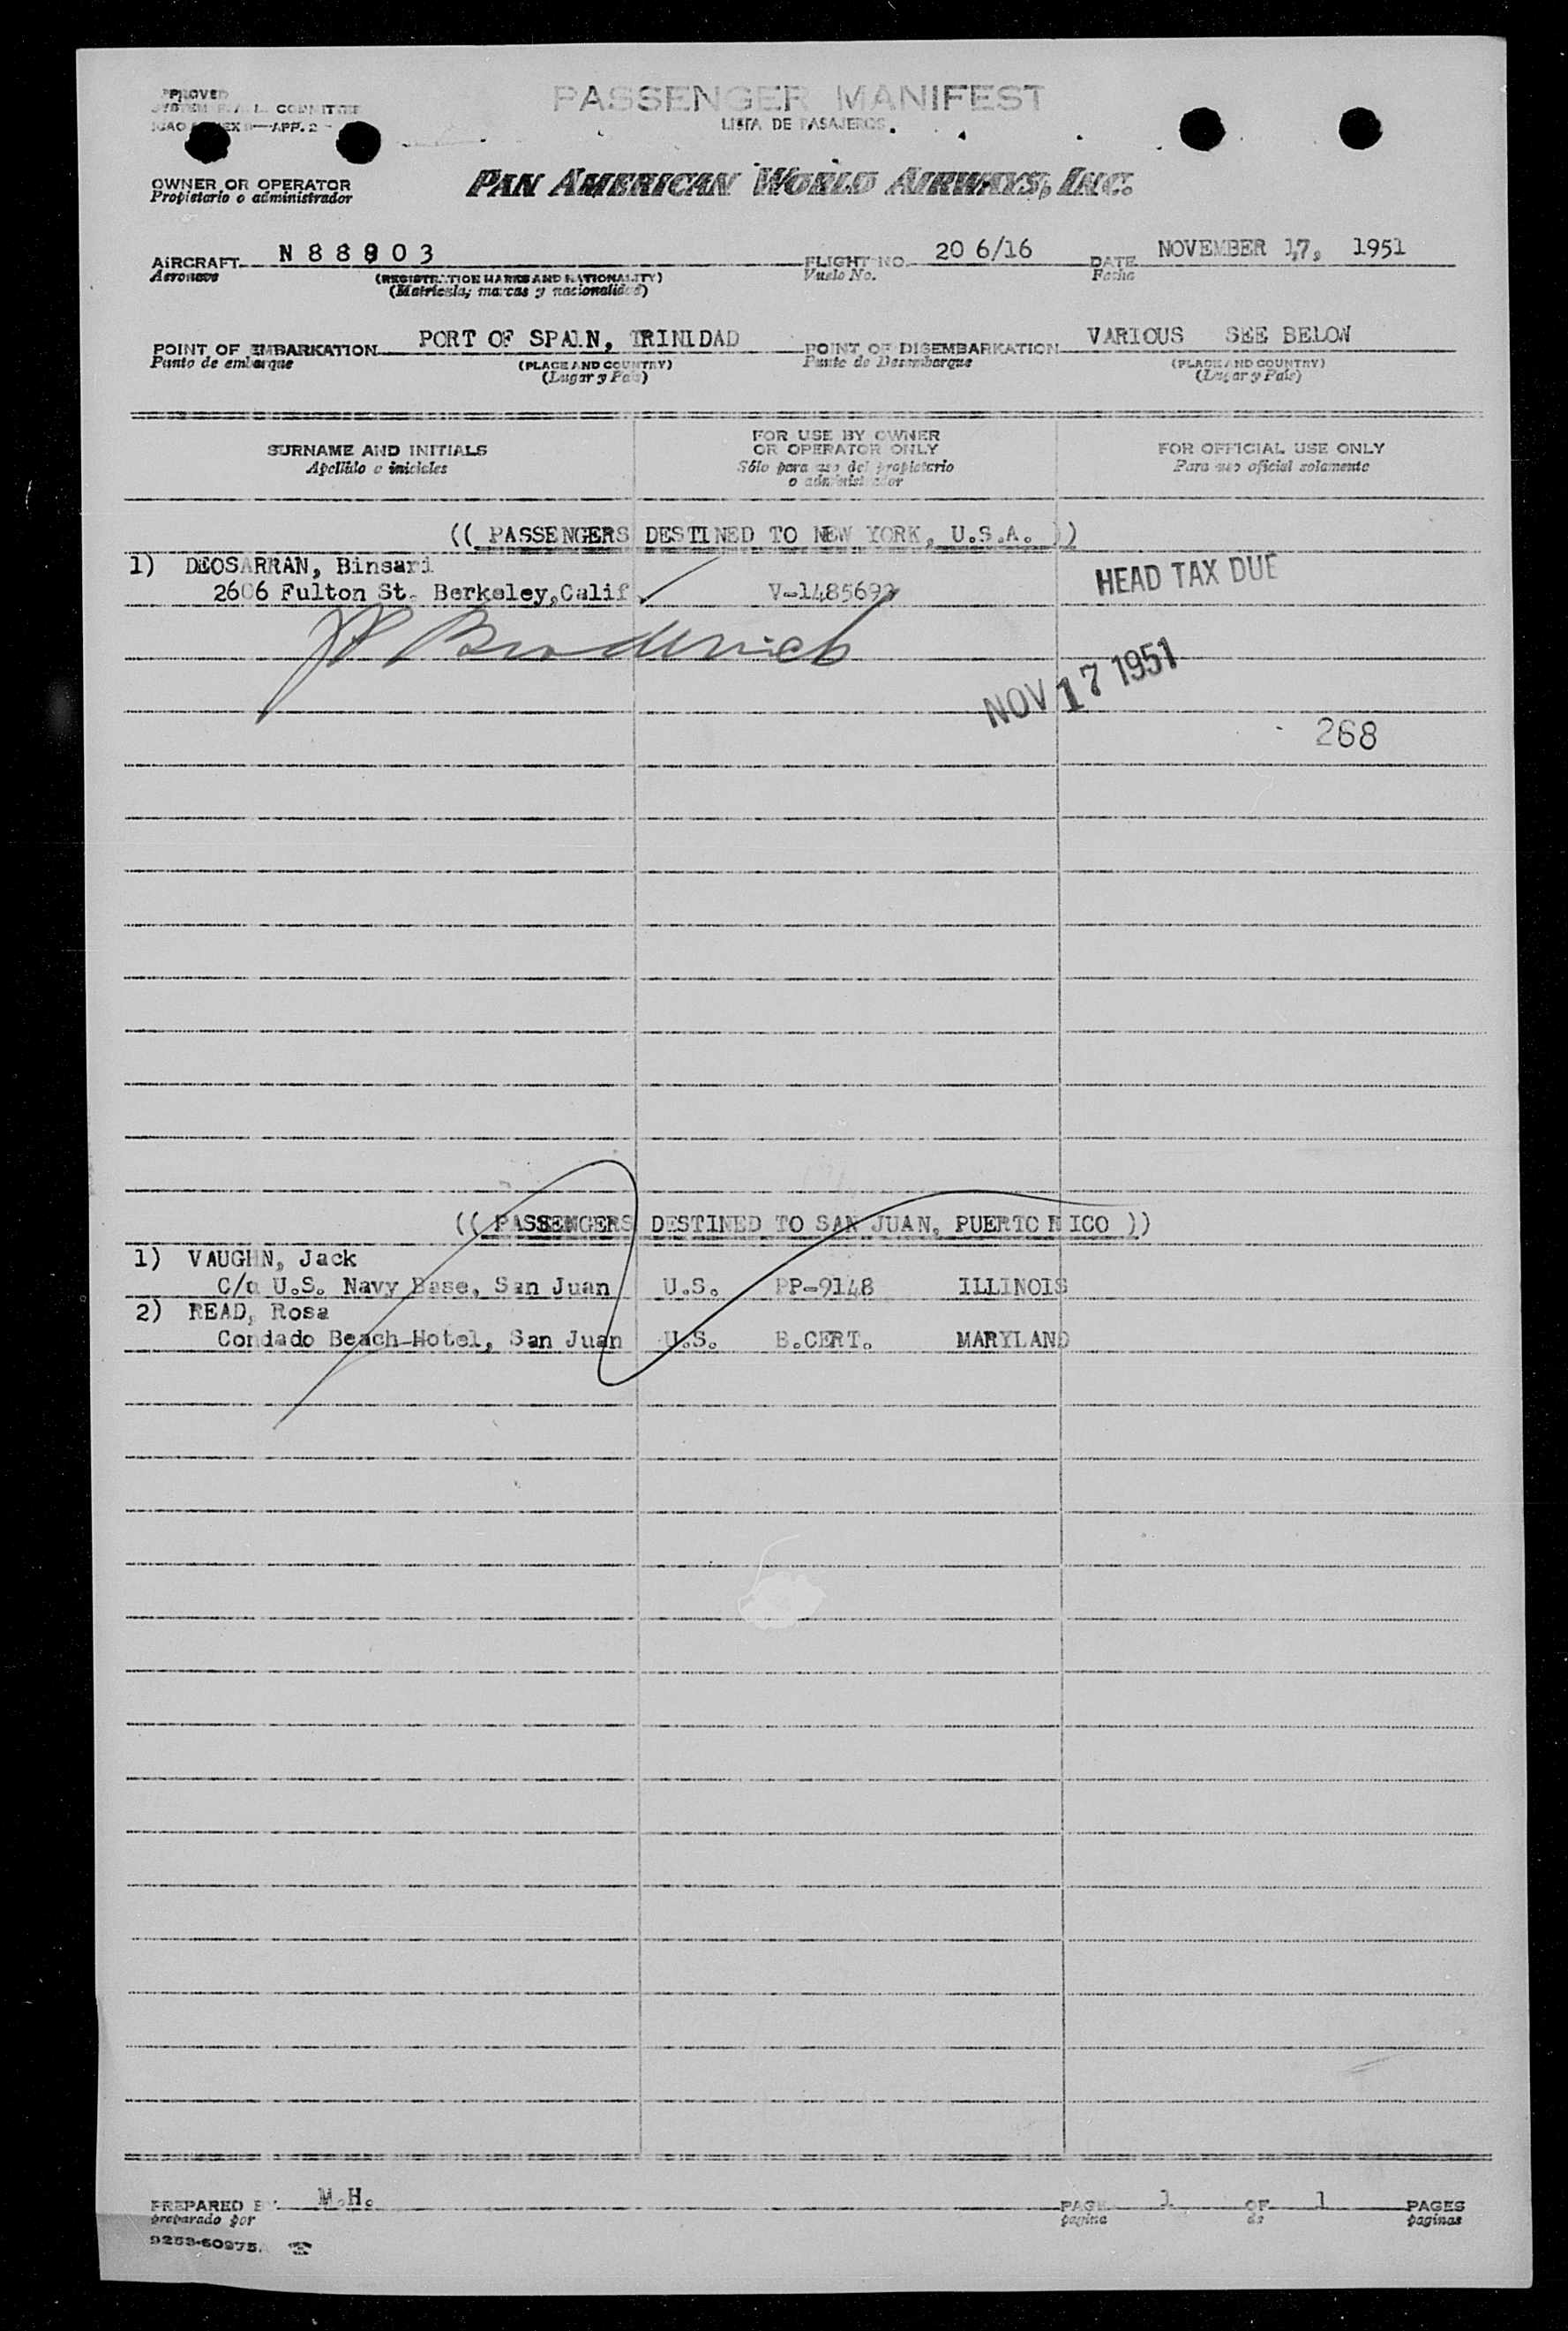 PASSENGER MANIFEST
LISTA DE PASAJEROS.
OWNER OR OPERATOR
Propietario o administrador
PAN AMERICAN WORLD AIRWAYS, INC.
AIRCRAFT N 8 8 9 0 3 FLIGHT NO. 20 6/16 DATE NOVEMBER 17, 1951
Aeronave Vuelo No. Fecha
(REGISTRATION MARKS AND NATIONALITY)
(Matrícula; marcas y nacionalidad)
POINT OF EMBARKATION PORT OF SPAIN, TRINIDAD POINT OF DISEMBARKATION VARIOUS SEE BELOW
Punto de embarque (PLACE AND COUNTRY) Punto de Desembarque (PLACE AND COUNTRY)
(Lugar y País) (Lugar y País)
SURNAME AND INITIALS
Apellido e iniciales
FOR USE BY OWNER
OR OPERATOR ONLY
Sólo para uso del propietario
o administrador
FOR OFFICIAL USE ONLY
Para uso oficial solamente
(( PASSENGERS DESTINED TO NEW YORK, U.S.A. ))
1) DEOSARRAN, Binsari
2606 Fulton St. Berkeley,Calif V-1485692
HEAD TAX DUE
NOV 17 1951
268
(( PASSENGERS DESTINED TO SAN JUAN, PUERTO RICO ))
1) VAUGHN, Jack
C/o U.S. Navy Base, San Juan U.S. PP-9148 ILLINOIS
2) READ, Rosa
Condado Beach Hotel, San Juan U.S. B.CERT. MARYLAND
PREPARED BY M.H. PAGE 1 OF 1 PAGES
preparado por pagina de paginas